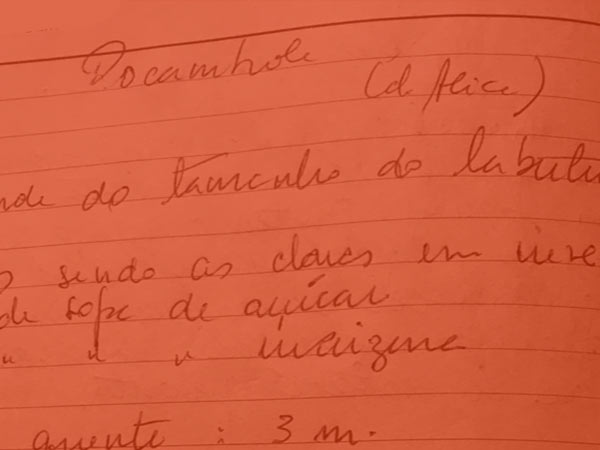 Rocambole
(da Alice)
nde do tamanho do tabulei
s sendo as claras em neve
de sopa de açúcar
" " " maizena
quente : 3 m.